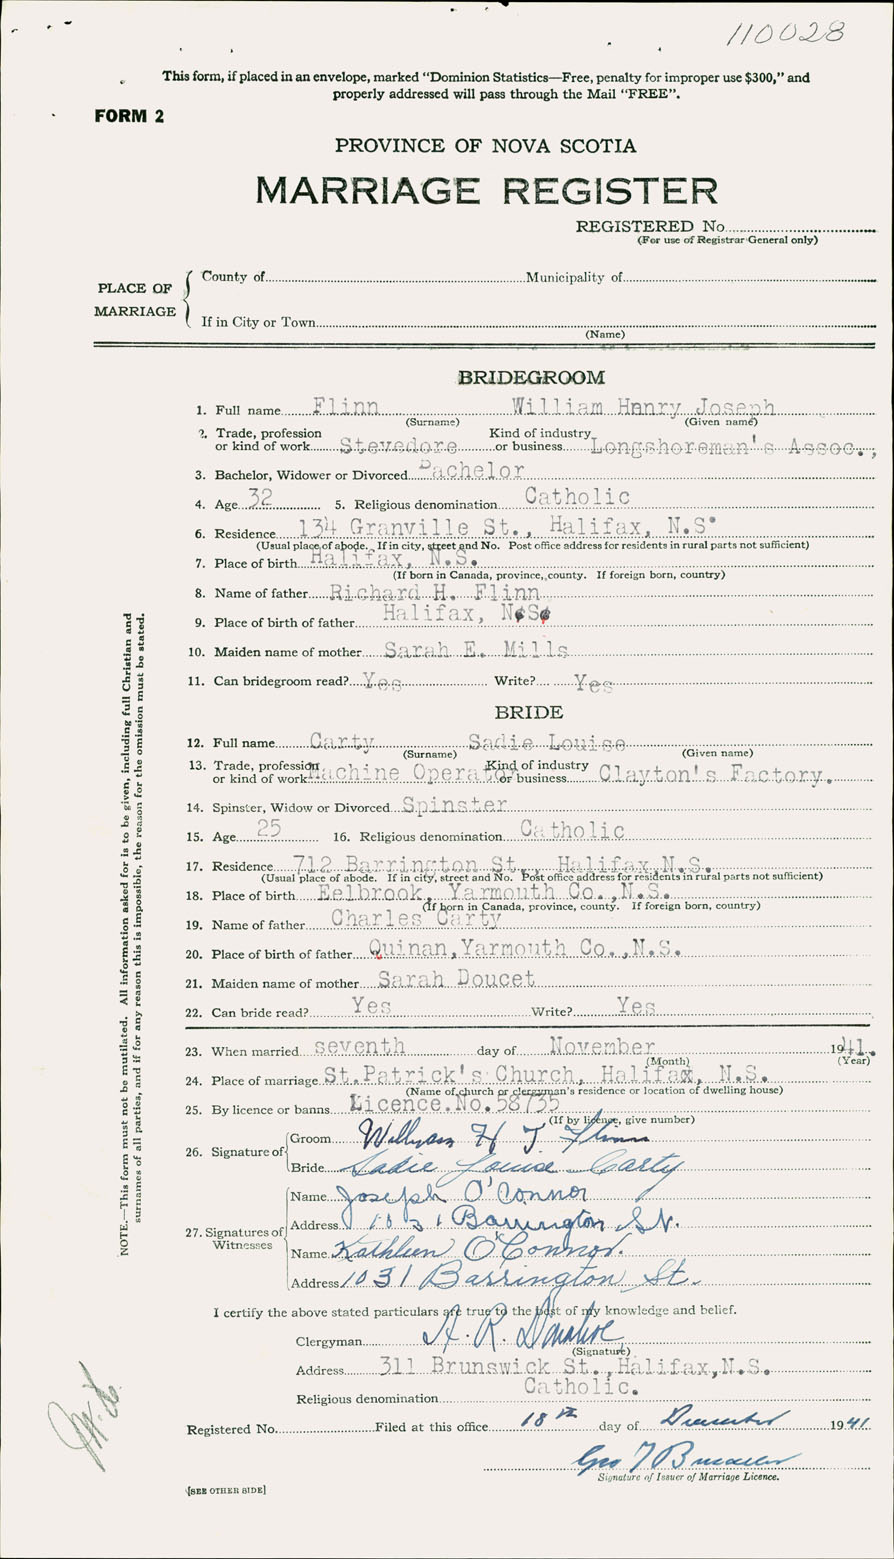 110028
This form, if placed in an envelope, marked “Dominion Statistics—Free, penalty for improper use $300,” and
properly addressed will pass through the Mail “FREE”.
FORM 2
PROVINCE OF NOVA SCOTIA
MARRIAGE REGISTER
REGISTERED No.
(For use of Registrar General only)
PLACE OF MARRIAGE
County of Municipality of
If in City or Town
(Name)
BRIDEGROOM
1. Full name Flinn William Hnnry Joseph
(Surname) (Given name)
2. Trade, profession or kind of work Stevedore Kind of industry or business Longshoreman's Assoc.,
3. Bachelor, Widower or Divorced Bachelor
4. Age 32 5. Religious denomination Catholic
6. Residence 134 Granville St., Halifax, N.S.
(Usual place of abode. If in city, street and No. Post office address for residents in rural parts not sufficient)
7. Place of birth Halifax, N.S.
(If born in Canada, province, county. If foreign born, country)
8. Name of father Richard H. Flinn
9. Place of birth of father Halifax, N.S.
10. Maiden name of mother Sarah E. Mills
11. Can bridegroom read? Yes Write? Yes
BRIDE
12. Full name Carty Sadie Louise
(Surname) (Given name)
13. Trade, profession or kind of work Machine Operator Kind of industry or business Clayton's Factory.
14. Spinster, Widow or Divorced Spinster
15. Age 25 16. Religious denomination Catholic
17. Residence 712 Barrington St., Halifax,N.S.
(Usual place of abode. If in city, street and No. Post office address for residents in rural parts not sufficient)
18. Place of birth Eelbrook, Yarmouth Co.,N.S.
(If born in Canada, province, county. If foreign born, country)
19. Name of father Charles Carty
20. Place of birth of father Quinan,Yarmouth Co.,N.S.
21. Maiden name of mother Sarah Doucet
22. Can bride read? Yes Write? Yes
23. When married seventh day of November 1941.
(Month) (Year)
24. Place of marriage St.Patrick's Church, Halifax, N.S.
(Name of church or clergyman's residence or location of dwelling house)
25. By licence or banns Licence.No.58735
(If by licence, give number)
26. Signature of
Groom William H J Flinn
Bride Sadie Louise Carty
27. Signatures of Witnesses
Name Joseph O'Connor
Address 1031 Barrington St.
Name Kathleen O'Connor.
Address 1031 Barrington St.
I certify the above stated particulars are true to the best of my knowledge and belief.
Clergyman A. R. Donahoe
(Signature)
Address 311 Brunswick St.,Halifax,N.S.
Religious denomination Catholic.
Registered No. Filed at this office 18th day of December 1941
Geo
Signature of Issuer of Marriage Licence.
[SEE OTHER SIDE]
NOTE.—This form must not be mutilated. All information asked for is to be given, including full Christian and
surnames of all parties, and if for any reason this is impossible, the reason for the omission must be stated.